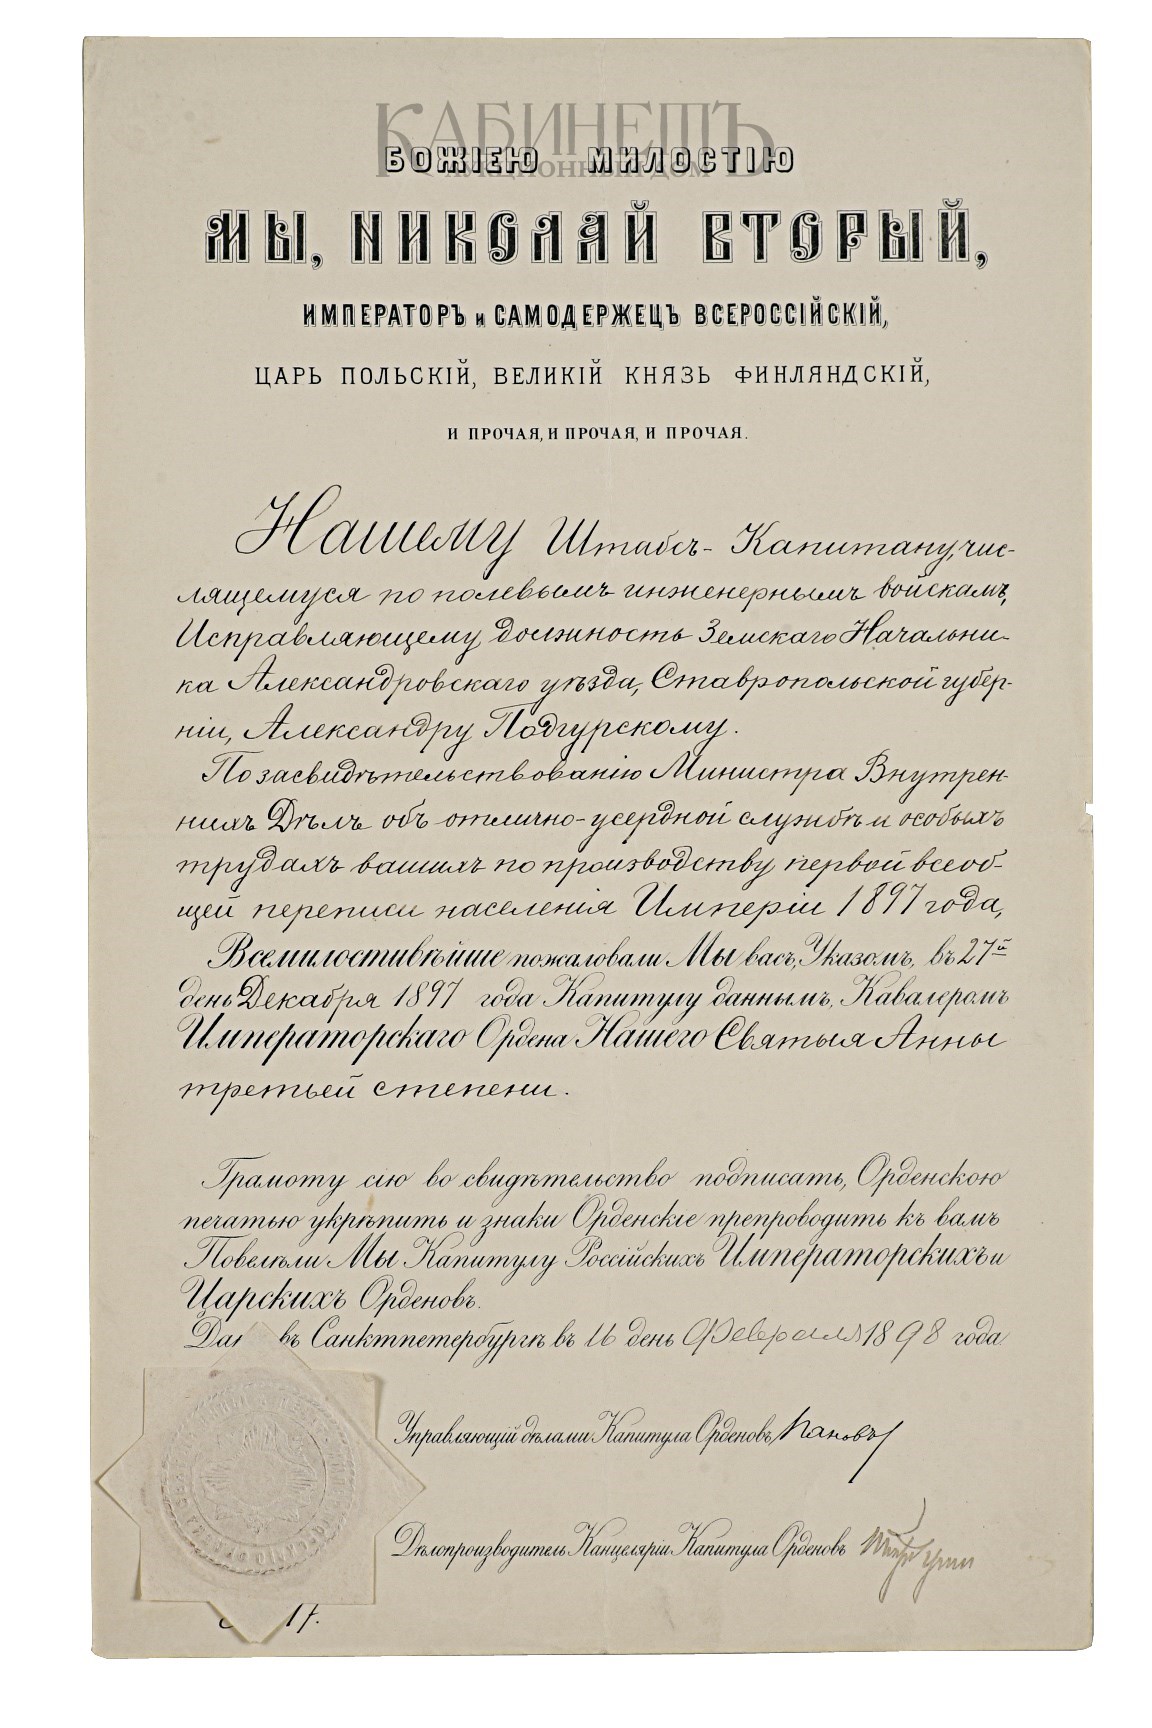 КАБИНЕТЪ
АУКЦИОННЫЙ ДОМ
БОЖІЕЮ МИЛОСТІЮ
МЫ, НИКОЛАЙ ВТОРЫЙ,
ИМПЕРАТОРЪ и САМОДЕРЖЕЦЪ ВСЕРОССІЙСКІЙ,
ЦАРЬ ПОЛЬСКІЙ, ВЕЛИКІЙ КНЯЗЬ ФИНЛЯНДСКІЙ,
И ПРОЧАЯ, И ПРОЧАЯ, И ПРОЧАЯ.
Нашему Штабсъ-Капитану, чис-
лящемуся по полевымъ инженернымъ войскамъ,
Исправляющему должность Земскаго Начальни-
ка Александровскаго уѣзда, Ставропольской губер-
ніи, Александру Подгурскому.
По засвидѣтельствованію Министра Внутрен-
нихъ Дѣлъ объ отлично-усердной службѣ и особыхъ
трудахъ вашихъ по производству первой всеоб-
щей переписи населенія Имперіи 1897 года,
Всемилостивѣйше пожаловали Мы васъ, Указомъ, въ 27й
день Декабря 1897 года Капитулу даннымъ, Кавалеромъ
Императорскаго Ордена Нашего Святыя Анны
третьей степени.
Грамоту сію во свидѣтельство подписать, Орденскою
печатью укрѣпить и знаки Орденскіе препроводить къ вамъ
Повелѣли Мы Капитулу Россійскихъ Императорскихъ и
Царскихъ Орденовъ.
Дан въ Санктпетербургѣ въ 16 день Февраля 1898 года
Управляющій дѣлами Капитула Орденовъ Пановъ
Дѣлопроизводитель Канцеляріи Капитула Орденовъ